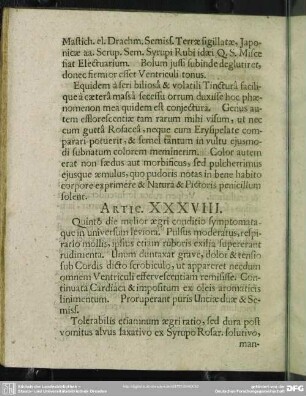 Mastich. el. Drachm. Semiss. Terræ sigillatæ, Japo-
nicæ aa. Scrup. Sem. Syrupi Rubi idæi Q. S. Misce
fiat Electuarium. Bolum jussi subinde deglutiret,
donec firmior esset Ventriculi tonus.
Equidem à seri biliosâ & volatili Tincturâ facili-
que à cæterâ massâ secessu ortum duxisse hoc phæ-
nomenon mea quidem est conjectura. Genus au-
tem efflorescentiæ tam rarum mihi visum, ut nec
cum guttâ Rosaceâ, neque cum Erysipelate com-
parari potuerit, & semel tantum in vultu ejusmo-
di subnatum colorem meminerim. Color autem
erat non fœdus aut morbificus, sed pulcherrimus
ejusque æmulus, quo pudoris notas in bene habito
corpore exprimere & Natura & Pictoris penicillum
solent.
Artic. XXXVIII.
Quintô die melior ægri conditio symptomata-
que in universum leviora. Pulsus moderatus, respi-
ratio mollis, ipsius etiam ruboris exilia supererant
rudimenta. Unum duntaxat grave, dolor & tensio
sub Cordis dicto scrobiculo, ut appareret necdum
omnem Ventriculi effervescentiam remisisse. Con-
tinuata Cardiaca & impositum ex oleis aromaticis
linimentum. Proruperant puris Unciæ duæ & Se-
miss.
Tolerabilis etiamnum ægri ratio, sed dura post
vomitus alvus laxativo ex Syrupo Rosar. solutivo,
man-